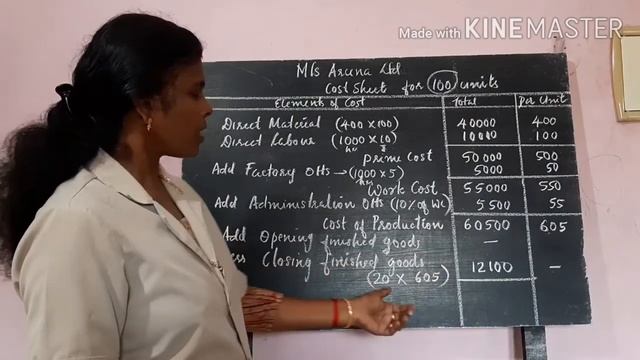 Made with KINEMASTER
M/s Aruna Ltd
Cost Sheet for 100 units
Elements of Cost Total Per Unit
Direct Material (400 x 100) 40000 400
Direct Labour (1000 x 10) 10000 100
Prime Cost 50000 500
Add Factory OHs → (1000 x 5) 5000 50
Work Cost 55000 550
Add Administration OHs (10% of WC) 5500 55
Cost of Production 60500 605
Add Opening finished goods —
Closing finished goods 12100 —
(20 x 605)